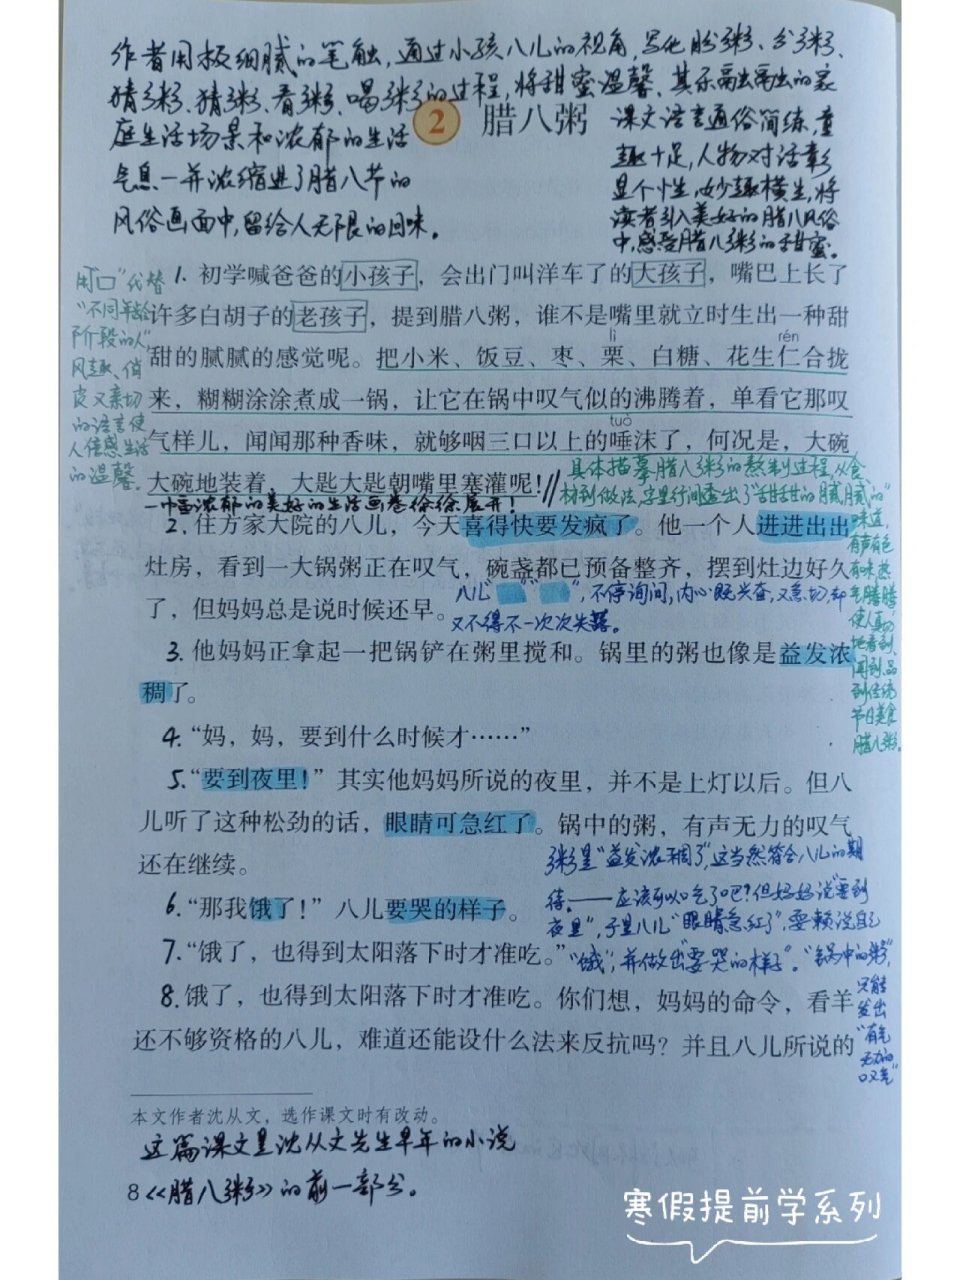 作者用极细腻的笔触,通过小孩八儿的视角,写化盼粥、分粥、
猜粥、猜粥、看粥、喝粥的过程,将甜蜜温馨、其乐融融的家
庭生活场景和浓郁的生活
气息一并浓缩进了腊八节的
风俗画面中,留给人无限的回味。
2 腊八粥
课文语言通俗简练,童
趣十足,人物对话彰
显个性,妙趣横生,将
读者引入美好的腊八风俗
中,感受腊八粥的甜蜜。
用“口”代替
“不同年龄
阶段的人”
风趣、俏
皮又亲切
的语言使
人倍感生活
的温馨。
1. 初学喊爸爸的小孩子,会出门叫洋车了的大孩子,嘴巴上长了
许多白胡子的老孩子,提到腊八粥,谁不是嘴里就立时生出一种甜
甜的腻腻的感觉呢。把小米、饭豆、枣、栗、白糖、花生仁合拢
lì rén
来,糊糊涂涂煮成一锅,让它在锅中叹气似的沸腾着,单看它那叹
气样儿,闻闻那种香味,就够咽三口以上的唾沫了,何况是,大碗
tuò
大碗地装着,大匙大匙朝嘴里塞灌呢!//
具体描摹腊八粥的熬制过程,从食
材到做法,字里行间透出了“甜甜的腻腻的”
味道,
有声有色
有味,热
气腾腾
使人真切
地看到、
闻到、品
到传统
节日美食
腊八粥。
一幅浓郁的美好的生活画卷徐徐展开!
2. 住方家大院的八儿,今天喜得快要发疯了。他一个人进进出出
灶房,看到一大锅粥正在叹气,碗盏都已预备整齐,摆到灶边好久
了,但妈妈总是说时候还早。
八儿“ ”“ ”,不停询问,内心既兴奋,又急切,却
又不得不一次次失落。
3. 他妈妈正拿起一把锅铲在粥里搅和。锅里的粥也像是益发浓
稠了。
4. “妈,妈,要到什么时候才……”
5. “要到夜里!”其实他妈妈所说的夜里,并不是上灯以后。但八
儿听了这种松劲的话,眼睛可急红了。锅中的粥,有声无力的叹气
还在继续。
粥是“益发浓稠了”,这当然符合八儿的期
待,——应该可以吃了吧?但妈妈说“要到
夜里”,于是八儿“眼睛急红了”,要赖说自己
“饿”,并做出“要哭的样子”。“锅中的粥”,
只能
发出
“有气
无力的
叹气”
6. “那我饿了!”八儿要哭的样子。
7. “饿了,也得到太阳落下时才准吃。”
8. 饿了,也得到太阳落下时才准吃。你们想,妈妈的命令,看羊
还不够资格的八儿,难道还能设什么法来反抗吗?并且八儿所说的
本文作者沈从文,选作课文时有改动。
这篇课文是沈从文先生早年的小说
8 《腊八粥》的前一部分。
寒假提前学系列